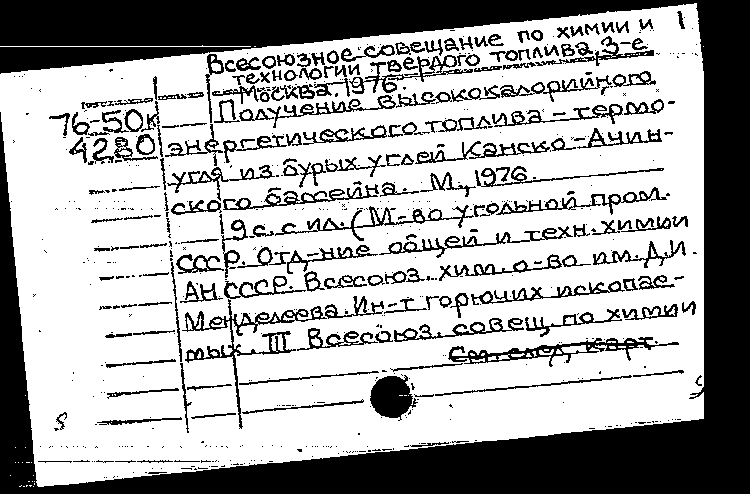 1
Всесоюзное совещание по химии и
технологии твердого топлива, 3-е
Москва, 1976.
76-50к
4280
Получение высококалорийного
энергетического топлива - термо-
угля из бурых углей Канско-Ачин-
ского бассейна. М., 1976.
9 с. с ил. (М-во угольной пром.
СССР. Отд-ние общей и техн. химии
АН СССР. Всесоюз. хим. о-во им. Д.И.
Менделеева. Ин-т горючих ископае-
мых. III Всесоюз. совещ. по химии
См. след. карт.